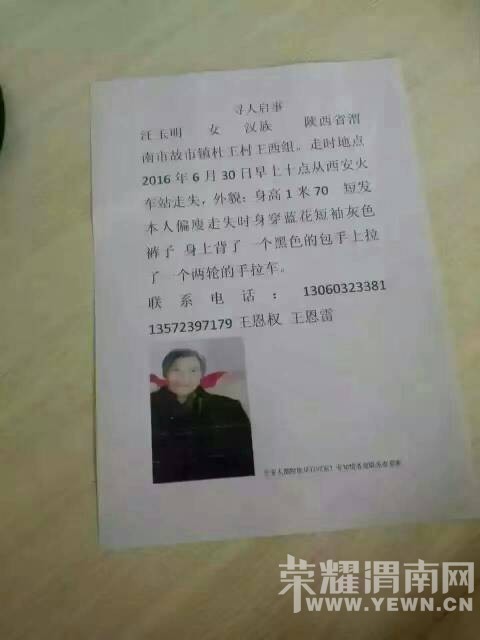 寻人启事
汪玉明 女 汉族 陕西省渭
南市故市镇杜王村王西组。走时地点
2016年6月30日早上十点从西安火
车站走失，外貌：身高1米70 短发
本人偏瘦走失时身穿蓝花短袖灰色
裤子 身上背了 一个黑色的包手上拉
了一个两轮的手拉车。
联系电话：13060323381
13572397179 王恩权 王恩雷
荣耀渭南网
WWW.YEWN.CN